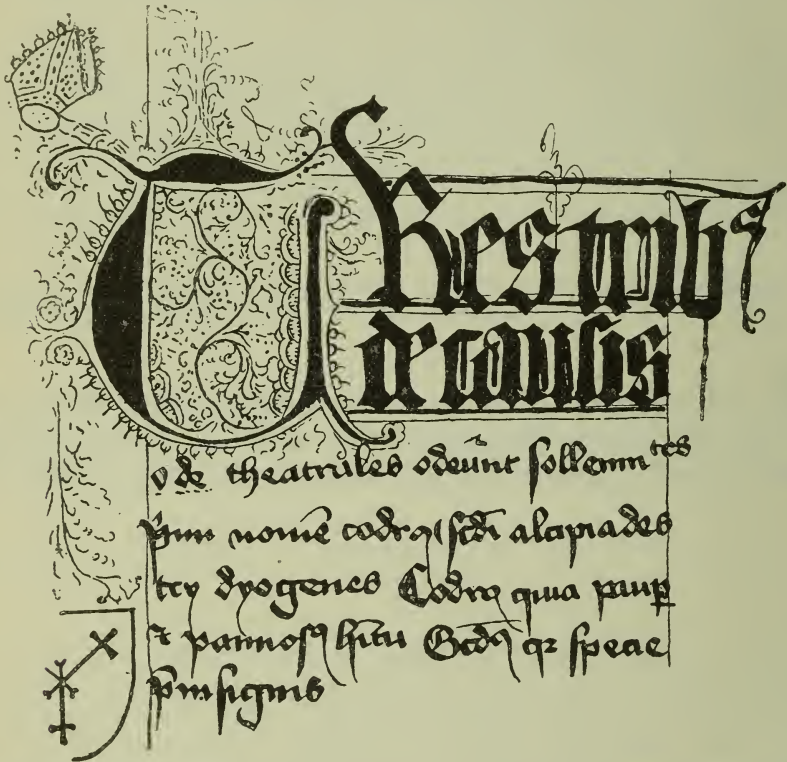 TRes tribꝰ
de causis
o de theatrales odeūnt sollemn tes
nomē codrꝯ scd̄i alcipiades
tcꝯ dyogenes Codrꝯ quia paup̲
⁊ pannosꝯ hītu Scdꝯ qꝛ specie
p̄insignis